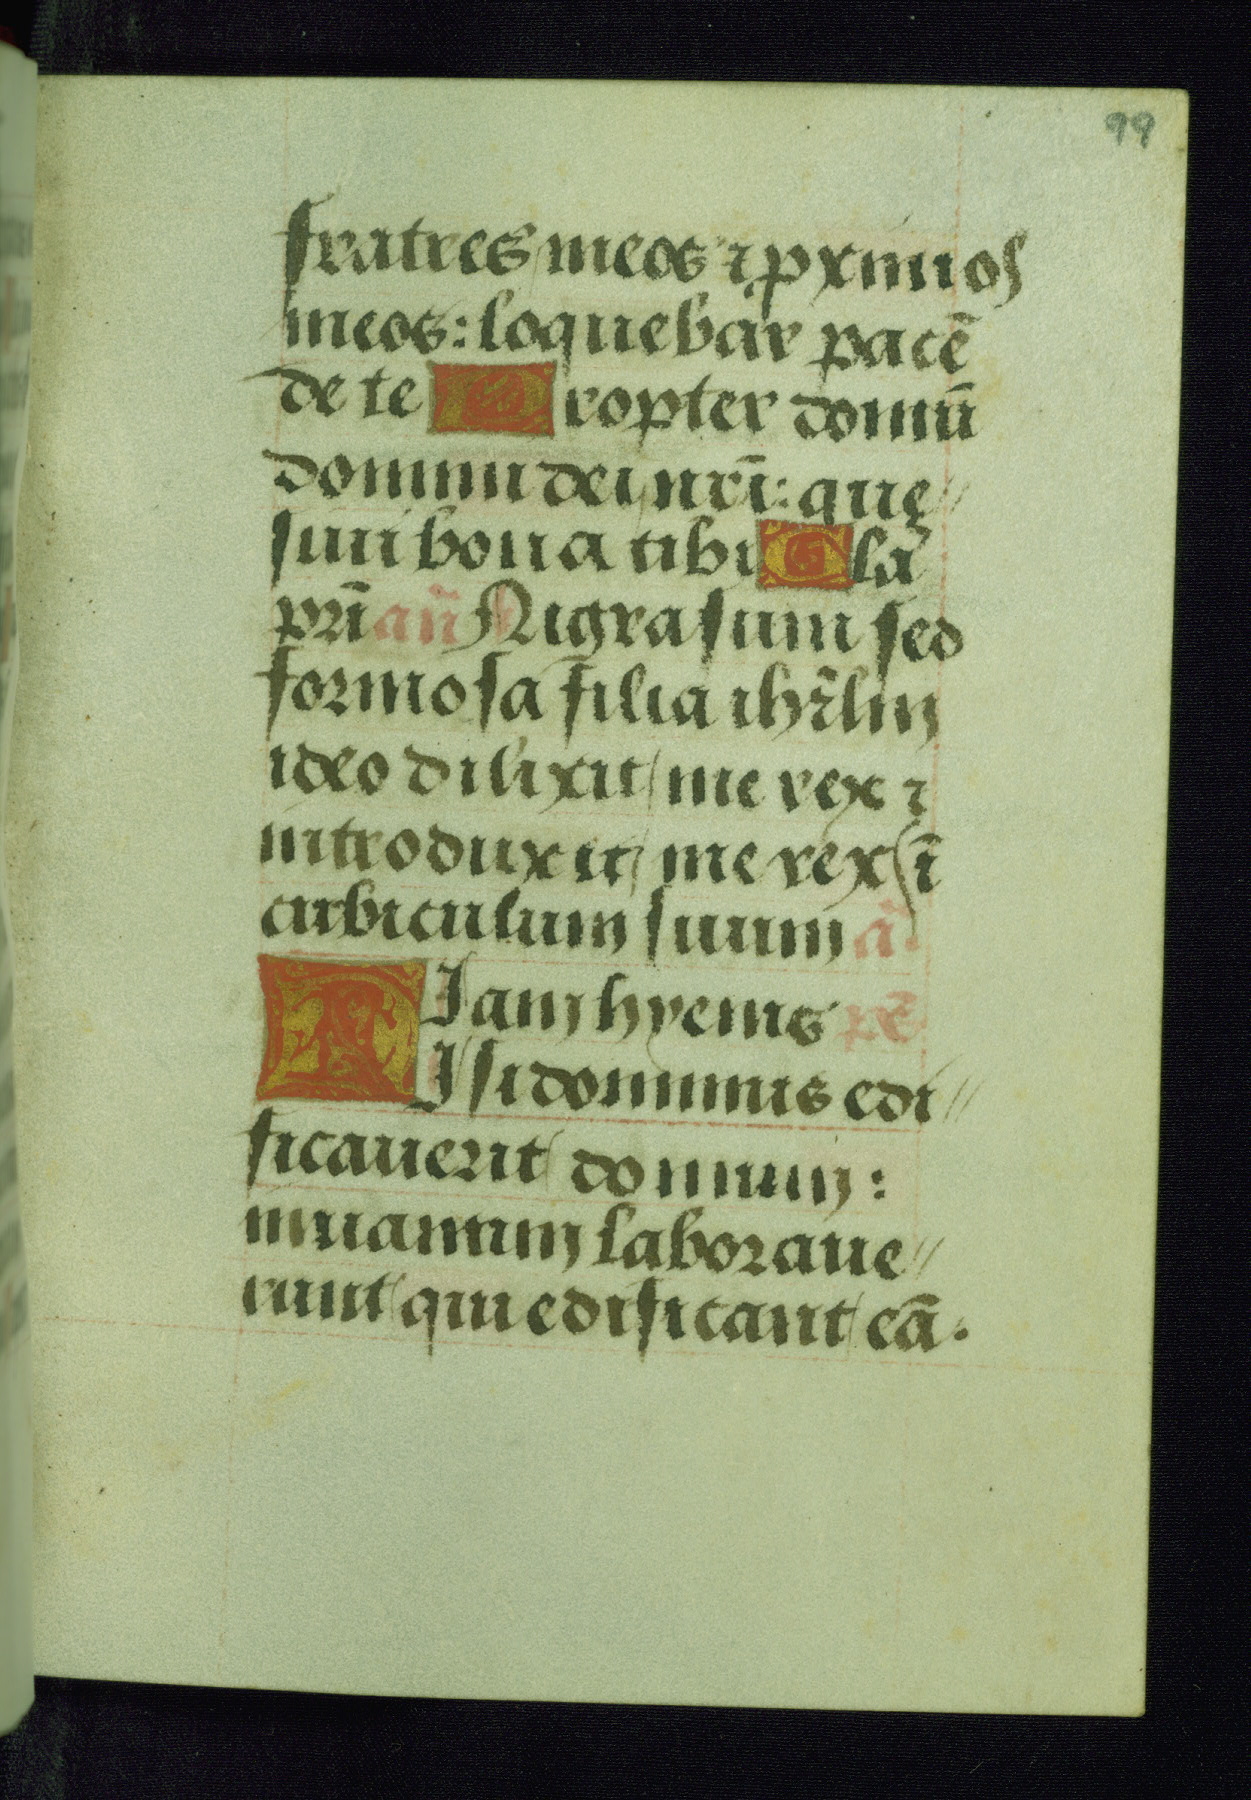 99
fratres meos ⁊ p̱ximos
meos: loquebar pacē
de te Propter domū
domini dei nr̄i: que//
siui bona tibi Gla
pr̄i añ Nigra sum sed
formosa filia ihrl̄m
ideo dilixit me rex ⁊
introduxit me rex ī
cubiculum suum a͂.
Iam hyems ps̄
NIsi dominus edi//
ficauerit domum:
inuanum laboraue//
runt qui edificant eā.